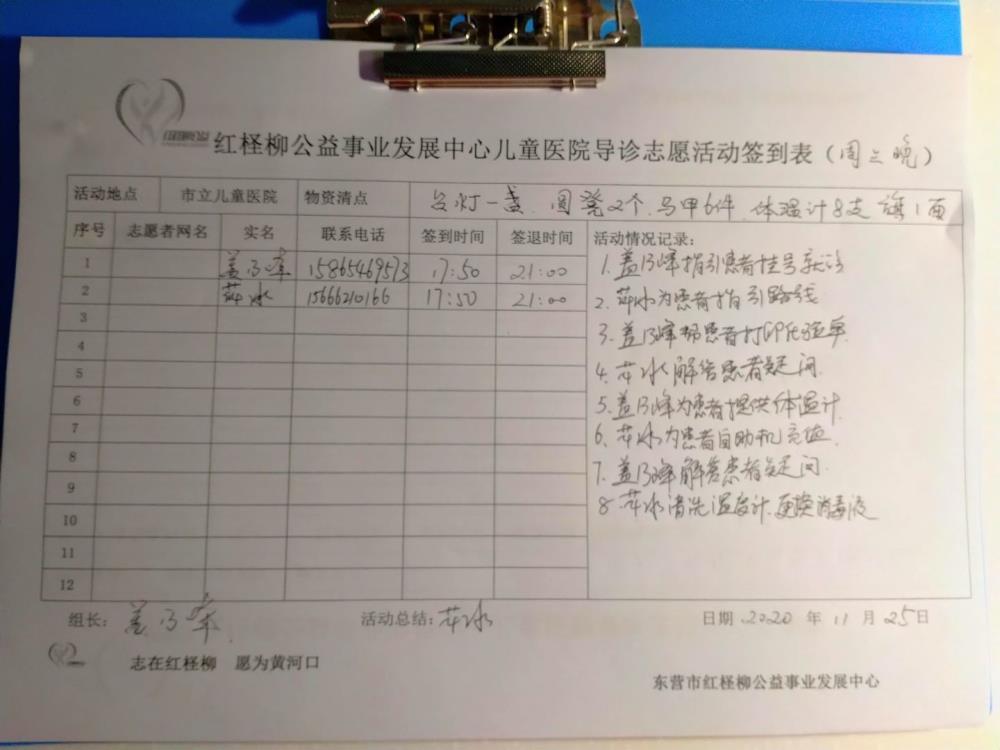 红柽柳公益
红柽柳公益事业发展中心儿童医院导诊志愿活动签到表（周三晚）
活动地点 市立儿童医院 物资清点 台灯一盏、圆凳2个、马甲6件、体温计8支 1页
序号 志愿者网名 实名 联系电话 签到时间 签退时间 活动情况记录：
1 盖乃峰 15865469573 17:50 21:00 1.盖乃峰指引患者挂号就诊
2 萍水 15666210166 17:50 21:00 2.萍水为患者指引路线
3 3.盖乃峰帮患者打印化验单
4 4.萍水解答患者疑问
5 5.盖乃峰为患者提供体温计
6 6.萍水为患者自助机充值
7 7.盖乃峰解答患者疑问
8 8.萍水清洗温度计.更换消毒液
9
10
11
12
组长：盖乃峰 活动总结：萍水 日期 2020 年 11 月 25日
志在红柽柳 愿为黄河口
东营市红柽柳公益事业发展中心